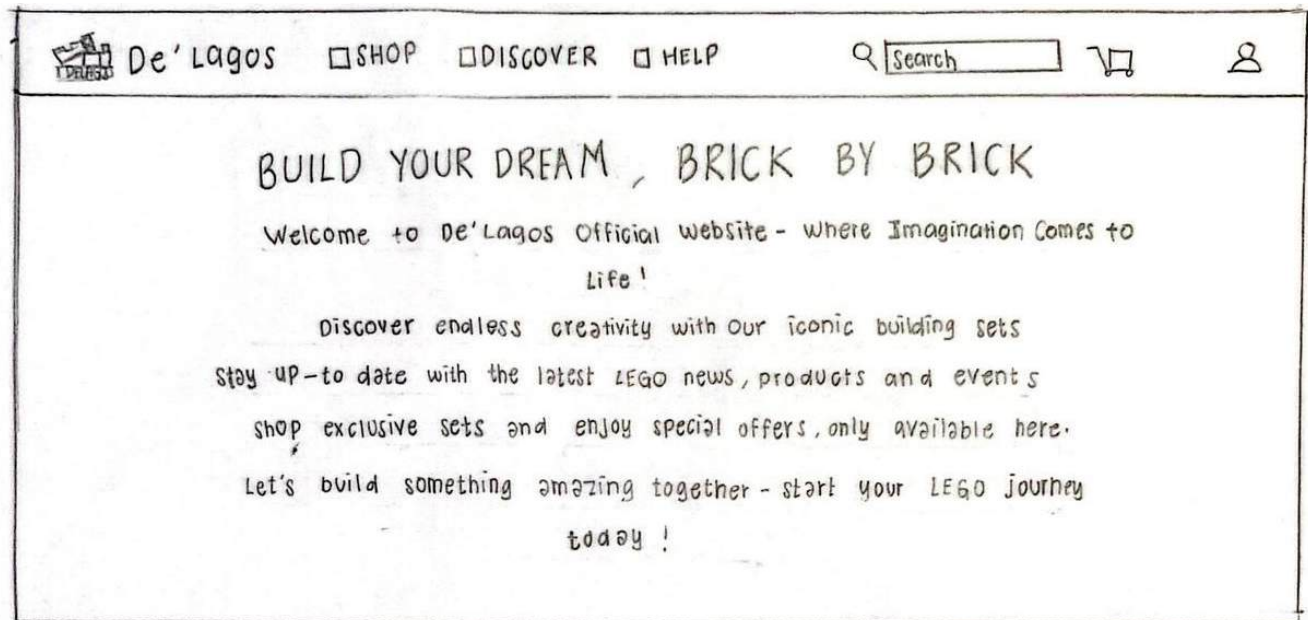 DELAGOS
De'Lagos SHOP DISCOVER HELP Search
BUILD YOUR DREAM, BRICK BY BRICK
Welcome to De'Lagos Official Website - Where Imagination Comes to
Life!
Discover endless creativity with our iconic building sets
Stay up-to date with the latest LEGO news, products and events
Shop exclusive sets and enjoy special offers, only available here.
Let's build something amazing together - start your LEGO journey
today!